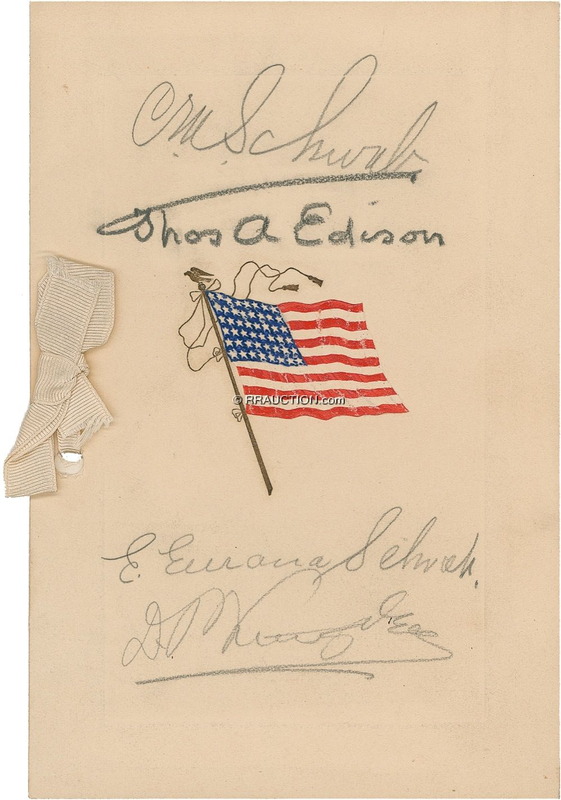 C.M. Schwab
Thos A Edison
© RRAUCTION.com
E. Eurana Schwab.